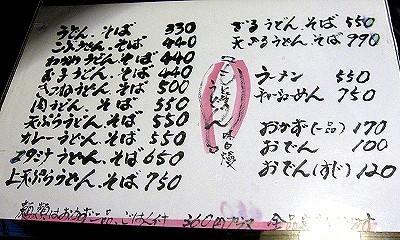 うどん.そば 330
こぶうどん.そば 440
わかめうどん.そば 440
おぼろうどん.そば 440
きつねうどん.そば 500
肉うどん.そば 550
天ぷらうどん.そば 550
カレーうどん.そば 550
スタミナうどん.そば 650
上天ぷらうどん.そば 750
ざるうどん.そば 550
天ざるうどん.そば 990
ラーメン 550
チャーシューめん 750
おかず(一品) 170
おでん 100
おでん(すじ) 120
麺類はおかず一品、ごはん付